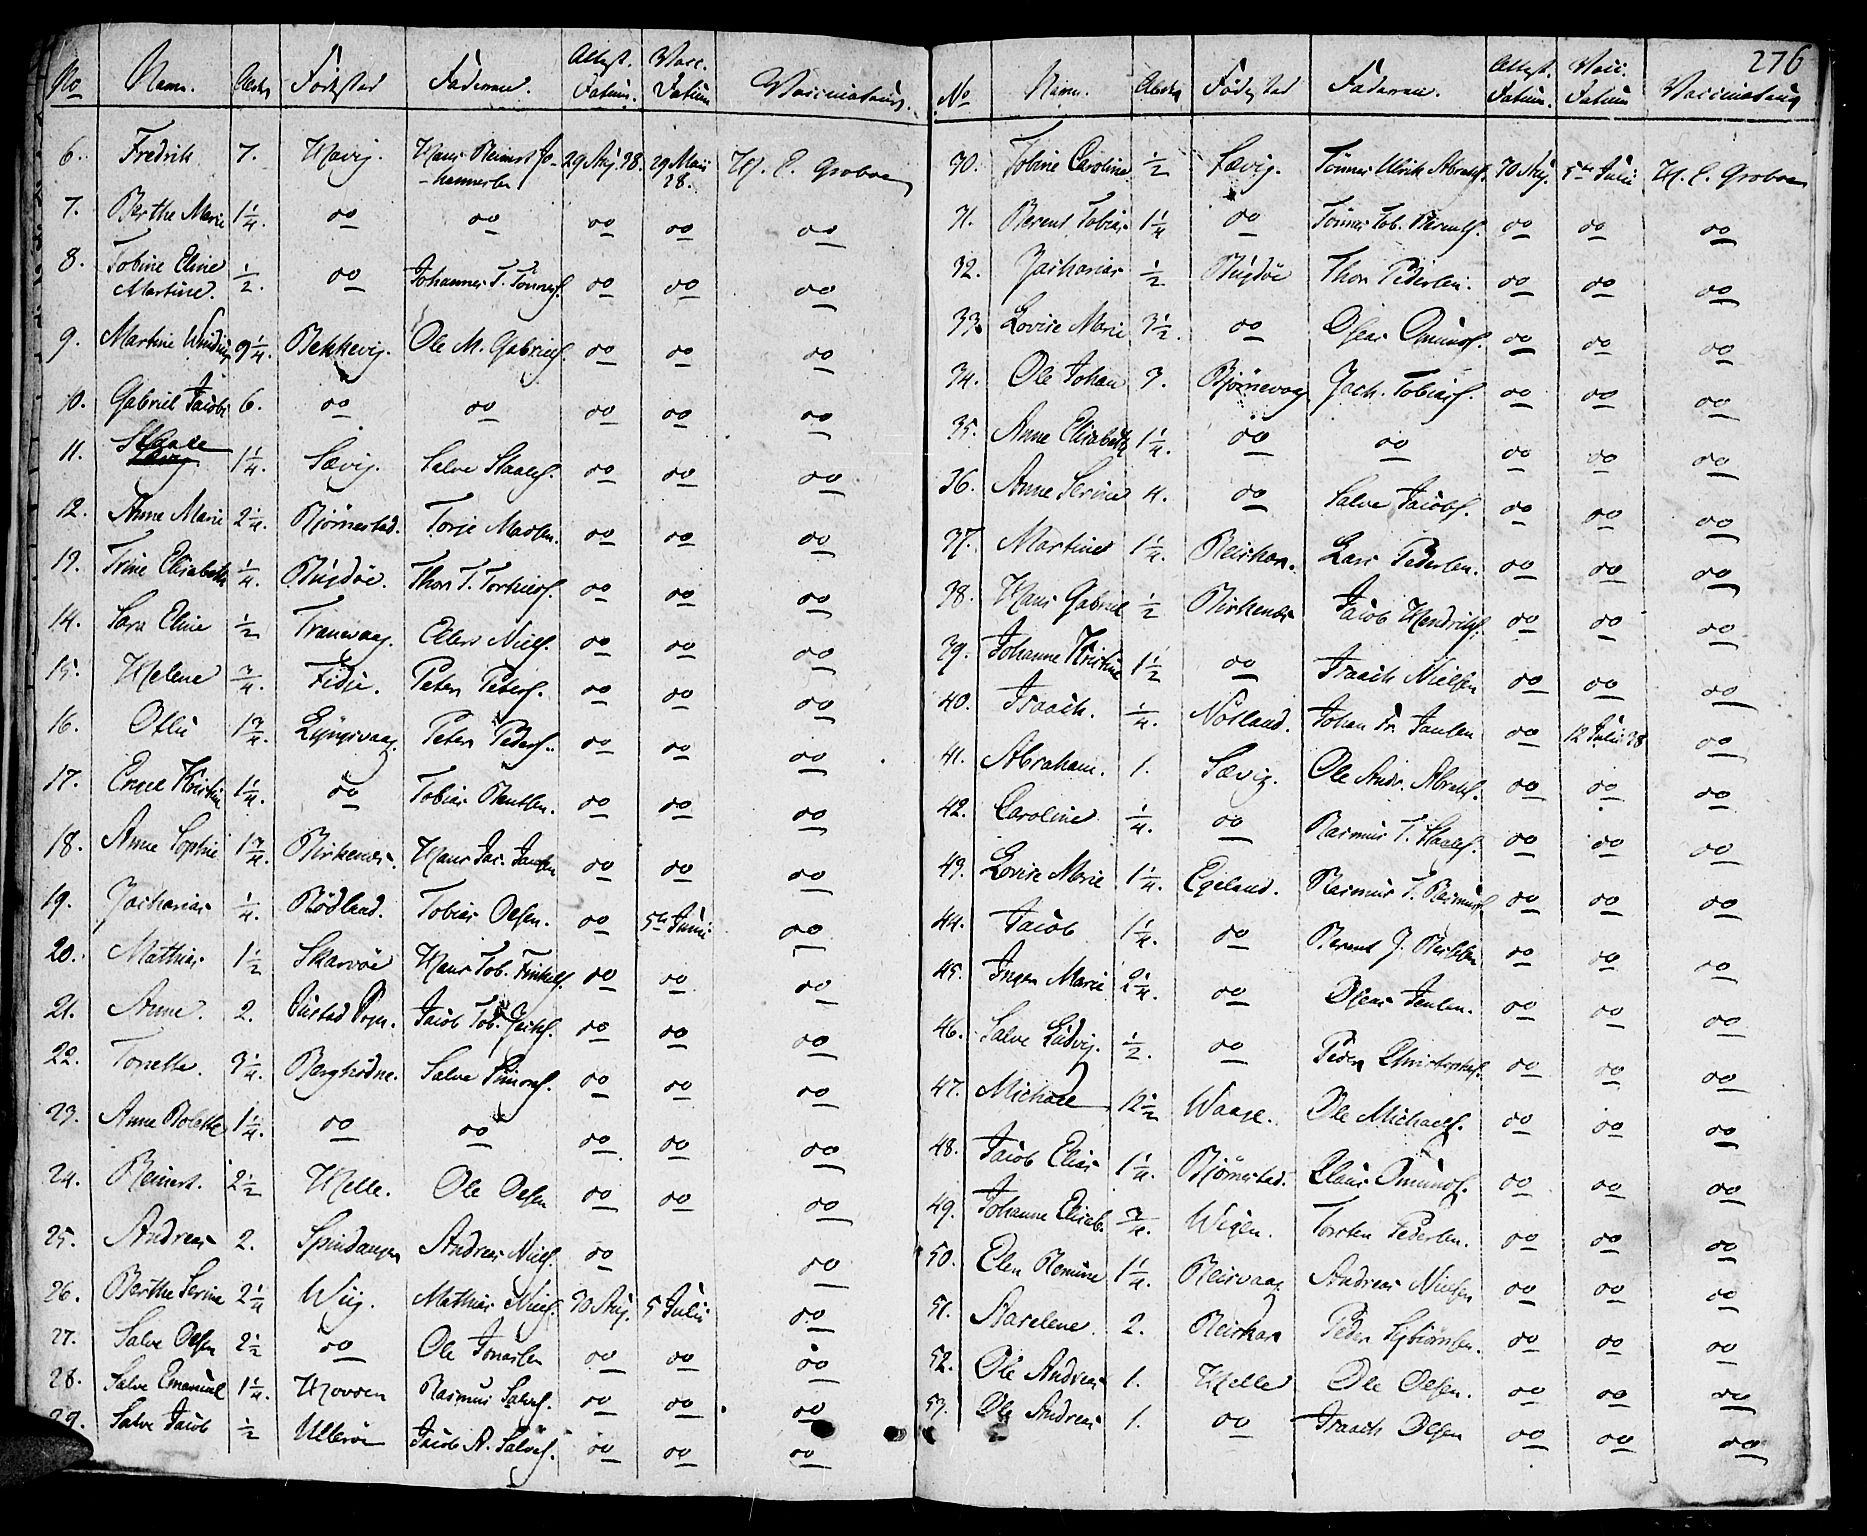 No Navn. Alder Fødested Faderens. Attest. Datum. Vacc. Datum Vaccinateurs.
6. Fredrik 7. Havig. Hans Reinert Jo-hannesen 29 Aug. 38. 29 Maii 28. H. C. Groboe
7. Berthe Marie 1 1/4. do do do do do
8. Tobine Eline Martine. 1/2. do Johannes T. Tønnes. do do do
9. Martine 9 1/4. Bekkevig. Ole M. Gabriels. do do do
10. Gabriel Jacob 6. do do do do do
11. Staale 1 1/4. Sævig. Salve Staales. do do do
12. Anne Marie 2 1/4. Bjørnestad. Torje Madsen. do do do
13. Trine Elisabeth 1/4. Bugdøe. Thor T. do do do
14. Sara Eline 1/2 Tranevaag. Eilert Niels. do do do
15. Helene 3/4. Fidje. Peter Peders. do do do
16. Otlu 1 3/4. Lyngsvaag. Peter Peders. do do do
17. Engel Kristin 1 1/4. do Tobias Bentsen. do do do
18. Anne Sophie 1 3/4. Birkenes. Hans Jac. Jansen do do do
19. Zacharias 1/4. Rødland. Tobias Olsen. do 5te Juni do
20. Mathias 1 1/2 Skarvøe Hans Tob. do do do
21. Anne. 2. Jacob Tob. Zachs. do do do
22. Tonette. 3 1/4. Berghødne. Salve Simons. do do do
23. Anne Bolette 1 1/4. do do do do do
24. Reinert. 2 1/2 Helle. Ole Olsen do do do
25. Andreas 2. Spindangen Andreas Niels. do do
26. Berthe Serine 2 1/4 Wiig. Mathias Niels. 30 Aug. 5 Julii do
27. Salve Olsen 2 1/2 do Ole Jonassen do do do
28. Salve Emanuel 1 1/4. Hovden Rasmus Salves. do do do
29. Salve Jacob 1/2 Ullerøe Jacob A. Salves. do do do
276
No Navn. Alder Fødested Faderens. Attest. Datum. Vacc. Datum Vaccinateurs
30. Tobine Caroline 1/2 Sævig. Tønnes Ulrik Abrahs. 30 Aug. 5te Julii H. C. Groboe
31. Berent Tobias 1 1/4 do Tønnes Tob. Berents. do do do
32. Zacharias 1/2 Bugdøe Thor Pedersen. do do do
33. Lovise Marie 3 1/2. do Omunds. do do do
34. Ole Johan 3. Bjørnevaag Zach. Tobias. do do do
35. Anne Elisabeth 1 1/4. do do do do do
36. Anne Serine 4. do Salve Jacobs. do do do
37. Martine 1 1/4. Lars Pedersen. do do do
38. Hans Gabriel 1/2 Birkenes Jacob Hendriks. do do do
39. Johanne Kristine 1 1/2 do Isaach Nielsen do do do
40. Isaach. 1/4. Nøtland. Johan Fr. Jansen do 12 Julii 38 do
41. Abraham. 1. Sævig. Ole Andr. Abrahs. do do do
42. Caroline 1/4. do Rasmus T. Staales. do do do
43. Lovise Marie 1 1/4. Egeland. Rasmus T. Rasmus. do do do
44. Jacob 1 1/4. do Berent J. do do do
45. Inger Marie 2 1/4. do Jensen. do do do
46. Salve Ludvig. 1/2. do Peder Christophs. do do do
47. Michael 12 1/2 Waage. Ole Michaels. do do do
48. Jacob Elias 1 1/4. Bjørnestad. Claus Omunds. do do do
49. Johanne Elisab. 3/4. Wigen. Torsten Pedersen. do do do
50. Elen Romine 1 1/4. Reisvaag Andreas Nielsen do do do
51. Aarelene. 2. Peder do do do
52. Ole Andreas 1. Helle Ole Olsen. do do do
53. Ole Andreas 1. do Isaach Olsen do do do